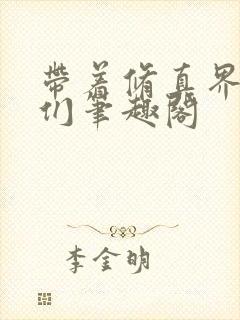 带着修真界
们笔趣阁
李金明